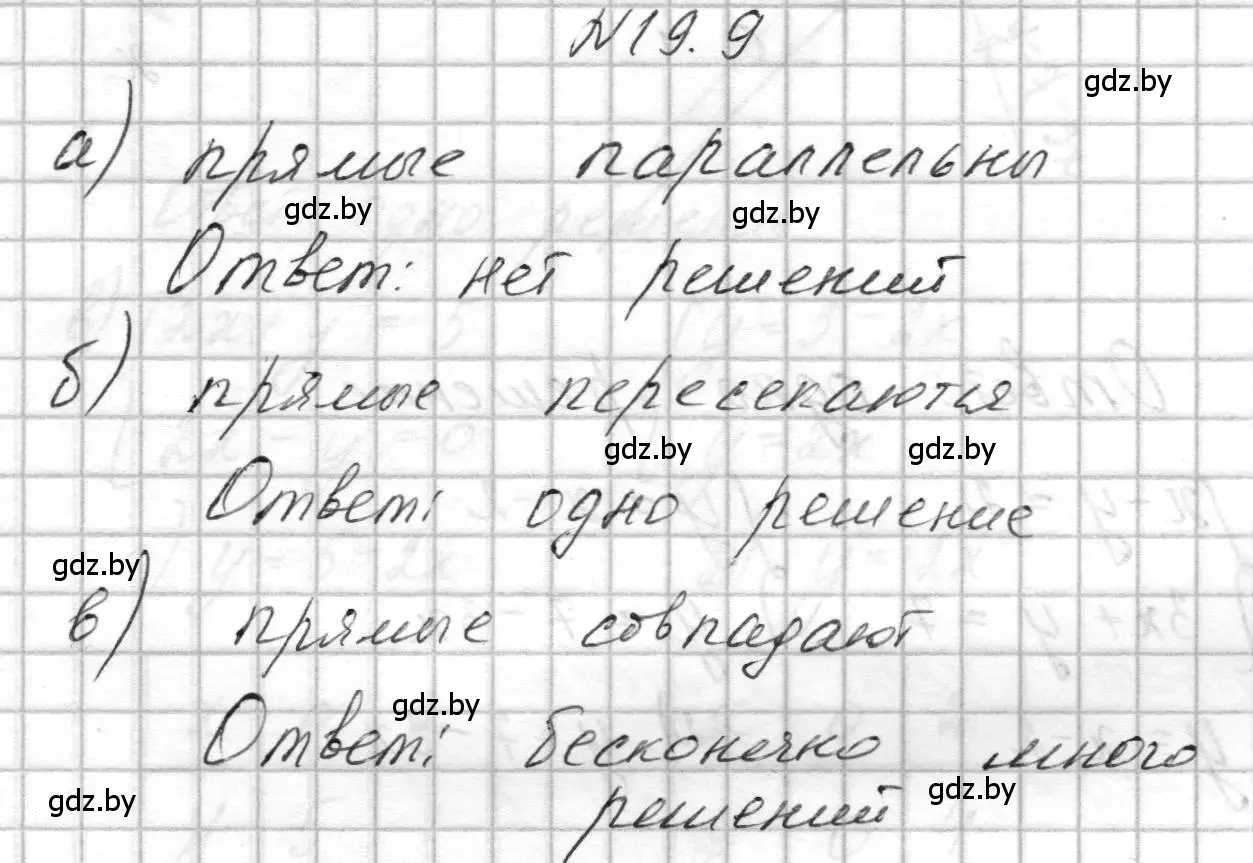 N19.9
gdz.by
а) прямые параллельны
gdz.by gdz.by
Ответ: нет решений
б) прямые пересекаются
gdz.by gdz.by
Ответ: одно решение
gdz.by
в) прямые совпадают
gdz.by
Ответ: бесконечно много
gdz.by gdz.by
решений